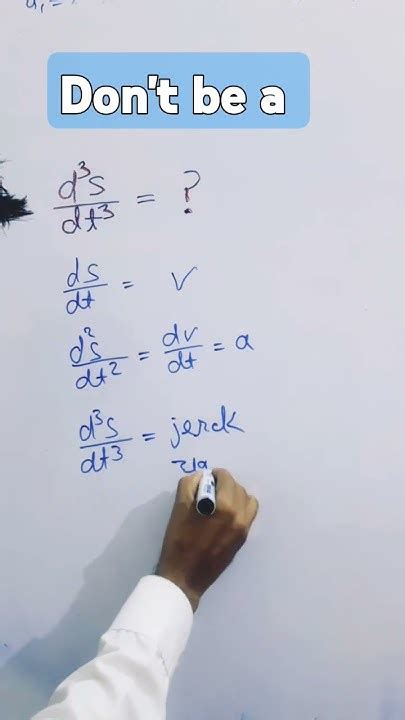 Don't be a
d³s/dt³ = ?
ds/dt = v
d²s/dt² = dv/dt = a
d³s/dt³ = jerck